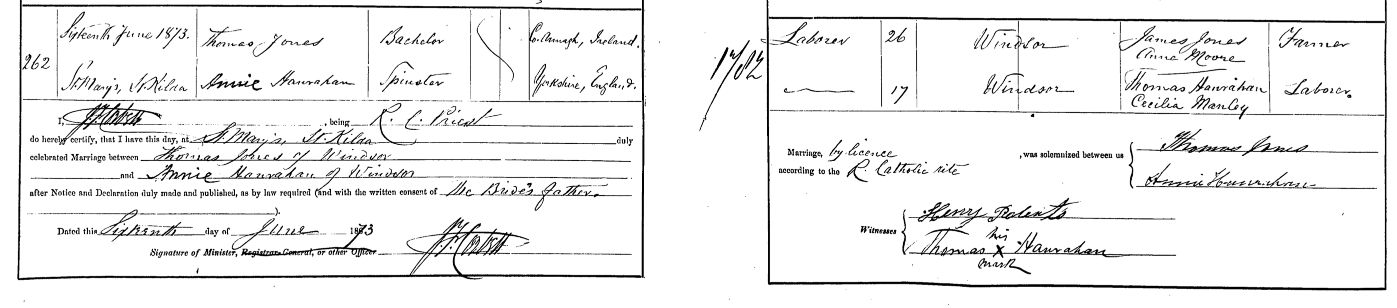 262
Sixteenth June 1873.
Thomas Jones
Bachelor
Co. Armagh, Ireland.
St. Mary's, St. Kilda
Annie Hanrahan
Spinster
Yorkshire, England.
I, J. F. Corbett, being R. C. Priest
do hereby certify, that I have this day, at St. Mary's, St. Kilda duly
celebrated Marriage between Thomas Jones of Windsor
and Annie Hanrahan of Windsor
after Notice and Declaration duly made and published, as by law required (and with the written consent of the Bride's father.
Dated this Sixteenth day of June 1873
Signature of Minister, Registrar-General, or other Officer J. F. Corbett
Laborer
26
Windsor
James Jones
Anne Moore
Farmer
17
Windsor
Thomas Hanrahan
Cecilia Manley
Laborer.
Marriage, by licence, was solemnized between us
according to the R. Catholic rite
Thomas Jones
Annie Hanrahan
Witnesses
Henry Roberts
Thomas his x mark Hanrahan